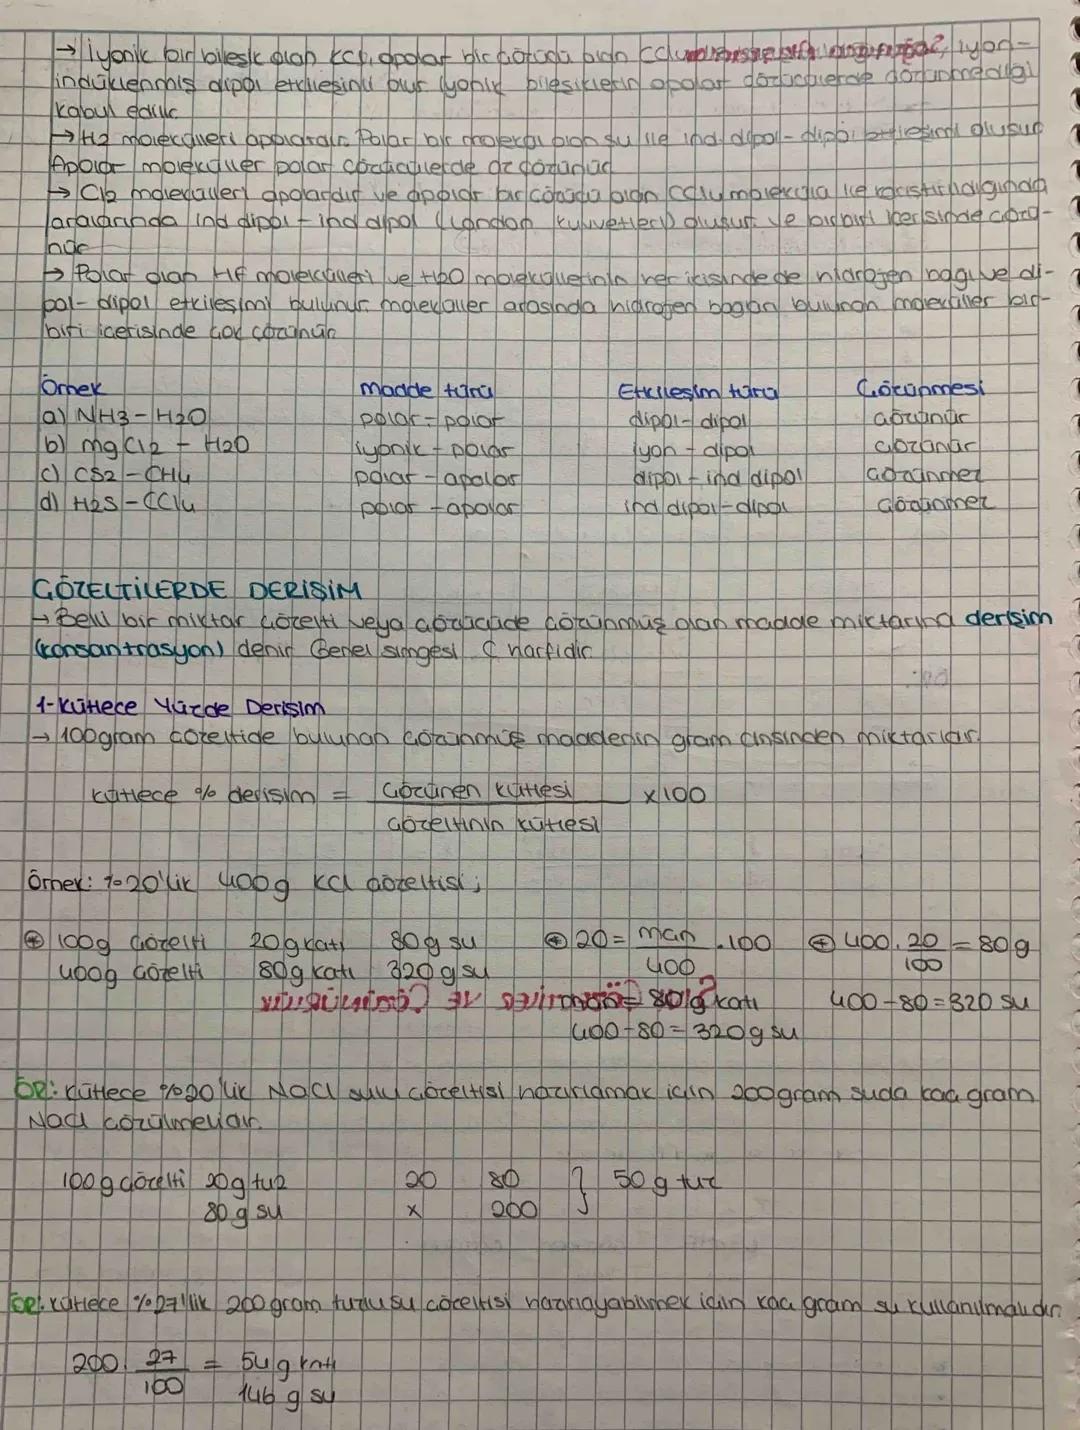 → İyonik bir bileşik olan KCl, apolar bir çözücü olan CCl4 iyon-
indüklenmiş dipol etkileşimi olur İyonik bileşiklerin apolar çözücülerde çözünmediği
kabul edilir
→ H2 molekülleri apolardır. Polar bir molekül olan su ile ind. dipol-dipol etkileşimi oluşur
Apolar moleküller polar çözücülerde az çözünür
→ Cl2 molekülleri apolardır ve apolar bir çözücü olan CCl4 molekülü ile karıştırıldığında
aralarında ind dipol-ind dipol (London kuvvetleri) oluşur. Ve birbiri içerisinde çözü-
nür
→ Polar olan HF molekülleri ve H2O moleküllerinin her ikisinde de hidrojen bağı ve di-
pol-dipol etkileşimi bulunur. moleküller arasında hidrojen bağları bulunan moleküller bir-
biri içerisinde çok çözünür
Örnek Madde türü Etkileşim türü Çözünmesi
a) NH3-H2O polar-polar dipol-dipol çözünür
b) MgCl2 - H2O iyonik-polar iyon-dipol çözünür
c) CS2-CH4 polar-apolar dipol-ind dipol çözünmez
d) H2S-CCl4 polar-apolar ind dipol-dipol çözünmez
ÇÖZELTİLERDE DERİŞİM
→ Belli bir miktar çözelti veya çözücüde çözünmüş olan madde miktarına derişim
(konsantrasyon) denir Genel simgesi C harfidir
1-Kütlece Yüzde Derişim
→ 100gram çözeltide bulunan çözünmüş maddenin gram cinsinden miktarıdır.
kütlece % derişim = çözünen kütlesi x100
çözeltinin kütlesi
Örnek: %20'lik 400g KCl çözeltisi;
⊕ 100g çözelti 20g katı 80g su ⊕ 20 = mçzn .100 ⊕ 400. 20 = 80g
400g çözelti 80g katı 320g su 400 100
= 80g katı 400-80=320 su
400-80=320g su
ÖR: Kütlece %20'lik NaCl sulu çözeltisi hazırlamak için 200gram suda kaç gram
NaCl çözülmelidir.
100g çözelti 20g tuz 20 80 } 50g tuz
80g su x 200
ÖR: Kütlece %27'lik 200gram tuzlu su çözeltisi hazırlayabilmek için kaç gram su kullanılmalıdır
200. 27 = 54g katı
100 146 g su